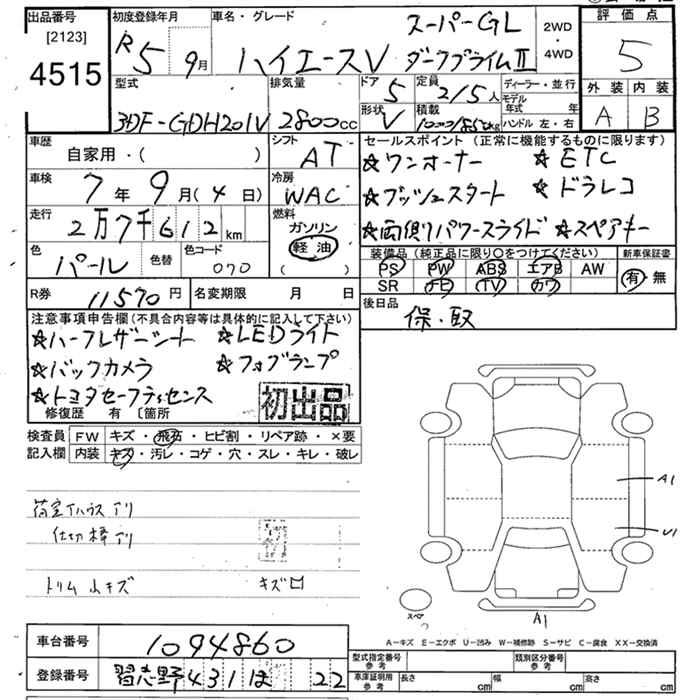 出品番号
[2123]
4515
初度登録年月
R5 9月
車名・グレード
スーパーGL
ハイエースV ダークプライムII
2WD
・
4WD
評価点
5
外装 内装
A B
型式
3DF-GDH201V
排気量
2800cc
ドア
5
形状
V
定員
2/5人
積載
1000/850kg
ディーラー・並行
モデル年式 年
ハンドル 左・右
車歴
自家用・( )
シフト
AT
車検
7年9月(4日)
冷房
WAC
走行
2万7千612km
燃料
ガソリン
軽油
( )
色
パール
色替
色コード
070
R券
11570円
名変期限 月 日
セールスポイント(正常に機能するものに限ります)
☆ワンオーナー ☆ETC
☆プッシュスタート ☆ドラレコ
☆両側パワースライド ☆スペアキー
装備品(純正品に限り○をつけてください)
PS PW ABS エアB AW
SR ナビ TV カワ
新車保証書
有・無
後日品
保・取
注意事項申告欄(不具合内容等は具体的に記入して下さい)
☆ハーフレザーシート ☆LEDライト
☆バックカメラ ☆フォグランプ
☆トヨタセーフティセンス
修復歴 有 〔箇所
初出品
検査員記入欄
FW キズ・飛石・ヒビ割・リペア跡・×要
内装 キズ・汚レ・コゲ・穴・スレ・キレ・破レ
荷室イハウスアリ
仕切棒アリ
トリム小キズ キズロ
A1
U1
スペア
A1
A-キズ E-エクボ U-凹み W-補修跡 S-サビ C-腐食 XX-交換済
車台番号
1094860
登録番号
習志野 431 ほ 22
型式指定番号
参考
類別区分番号
参考
車庫証明用
参考
長さ cm 幅 cm 高さ cm